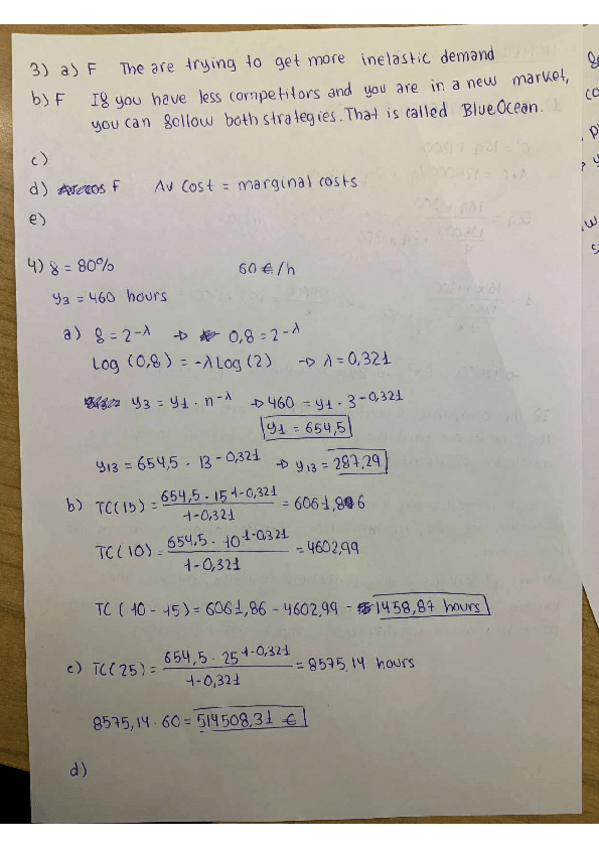 3) a) F The are trying to get more inelastic demand
b) F If you have less competitors and you are in a new market,
you can follow both strategies. That is called Blue Ocean.
c)
d) F Av Cost = marginal costs
e)
4) f = 80% 60 €/h
y3 = 460 hours
a) f = 2^-λ → 0,8 = 2^-λ
Log (0,8) = -λ Log (2) → λ = 0,321
y3 = y1 · n^-λ → 460 = y1 · 3^-0,321
y1 = 654,5
y13 = 654,5 · 13^-0,321 → y13 = 287,29
b) TC(15) = 654,5 · 15^1-0,321 / 1-0,321 = 6061,86
TC(10) = 654,5 · 10^1-0,321 / 1-0,321 = 4602,99
TC (10 - 15) = 6061,86 - 4602,99 - 1458,87 hours
c) TC(25) = 654,5 · 25^1-0,321 / 1-0,321 = 8575,14 hours
8575,14 · 60 = 514508,31 €
d)